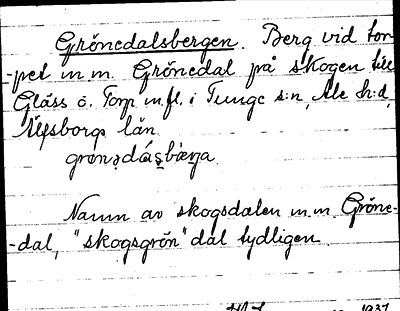 Grönedalsbergen. Berg vid tor-
-pet m m. Grönedal på skogen till
Gläss ö. Torp m.fl. i Tunge s:n, Ale h:d,
Älfsborgs län.
Namn av skogsdalen m.m. Gröne-
-dal, "skogsgrön" dal tydligen.
1937